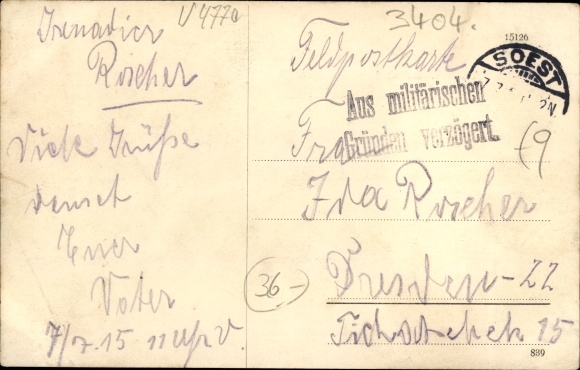 Grenadier
Roscher
Viele Grüße
sendet
Euer
Vater
7/7.15 11 Uhr V.
V477a
3404.
15126
Feldpostkarte
SOEST
Aus militärischen
Gründen verzögert.
Frau
Ida Roscher
Dresden-22
15
36-
839